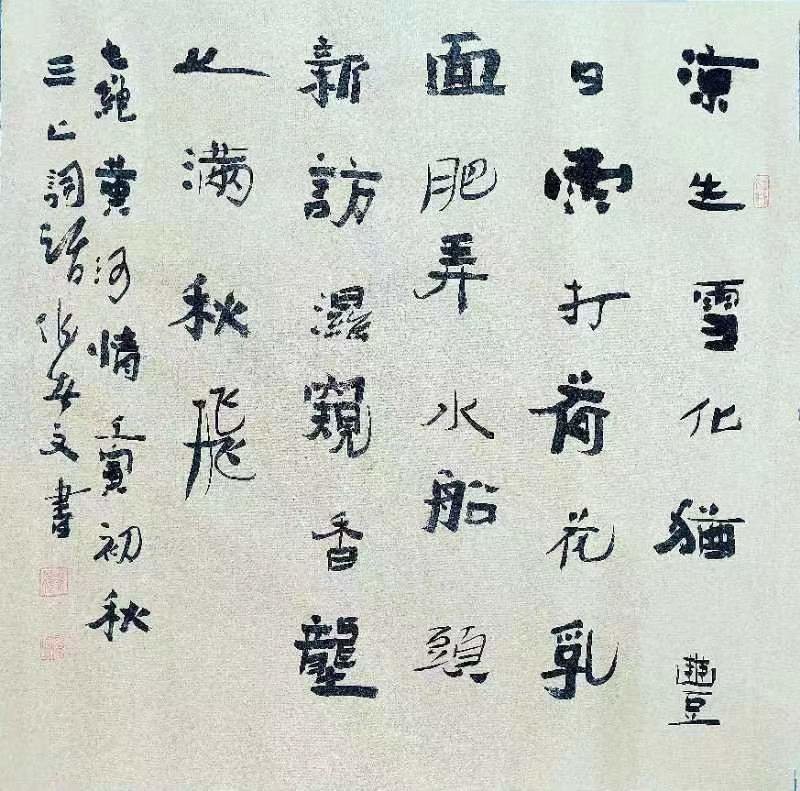 涼生雪化猶豐
日雨打荷花乳
面肥弄水船頭
新訪濕窺香壟
上满秋飛
七絕黄河情壬寅初秋
三上詞話文書